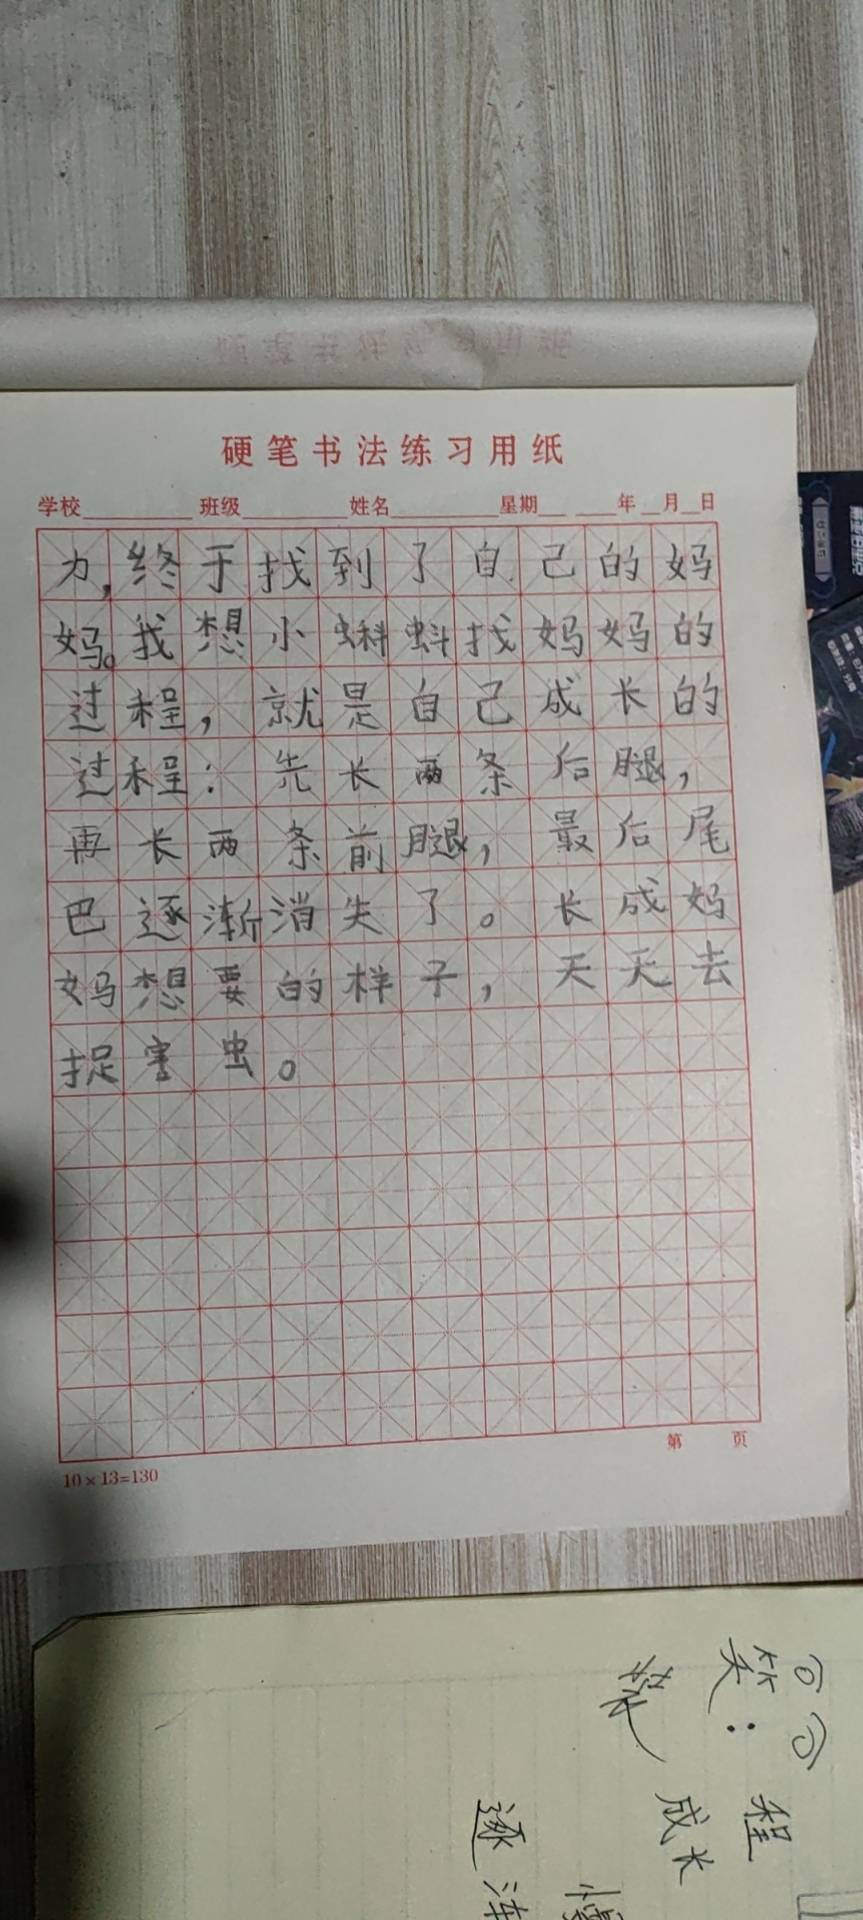 硬笔书法练习用纸
学校 班级 姓名 星期 年 月 日
力，终于找到了自己的妈
妈。我想小蝌蚪找妈妈的
过程，就是自己成长的
过程：先长两条后腿，
再长两条前腿，最后尾
巴逐渐消失了。长成妈
妈想要的样子，天天去
捉害虫。
第 页
10×13=130
笑：
程
成长
逐